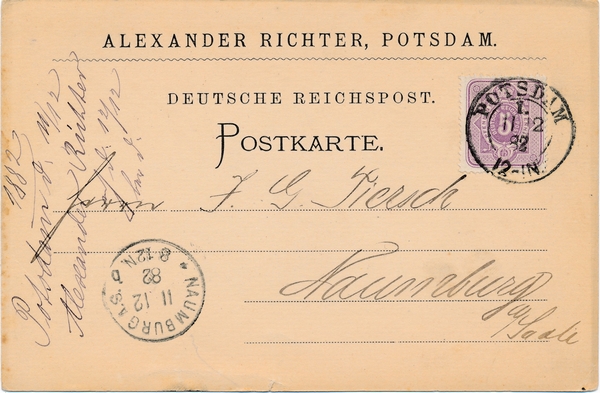 ALEXANDER RICHTER, POTSDAM.
DEUTSCHE REICHSPOST.
POSTKARTE.
POTSDAM
1.
11 12
82
12-1N.
5
Herrn J. G. Piersch
Naumburg
a/Saale
NAUMBURG a/S
11 12
82
8-12N
1882
Potsdam d. 11/12
Alexander Richter
d. 12/12